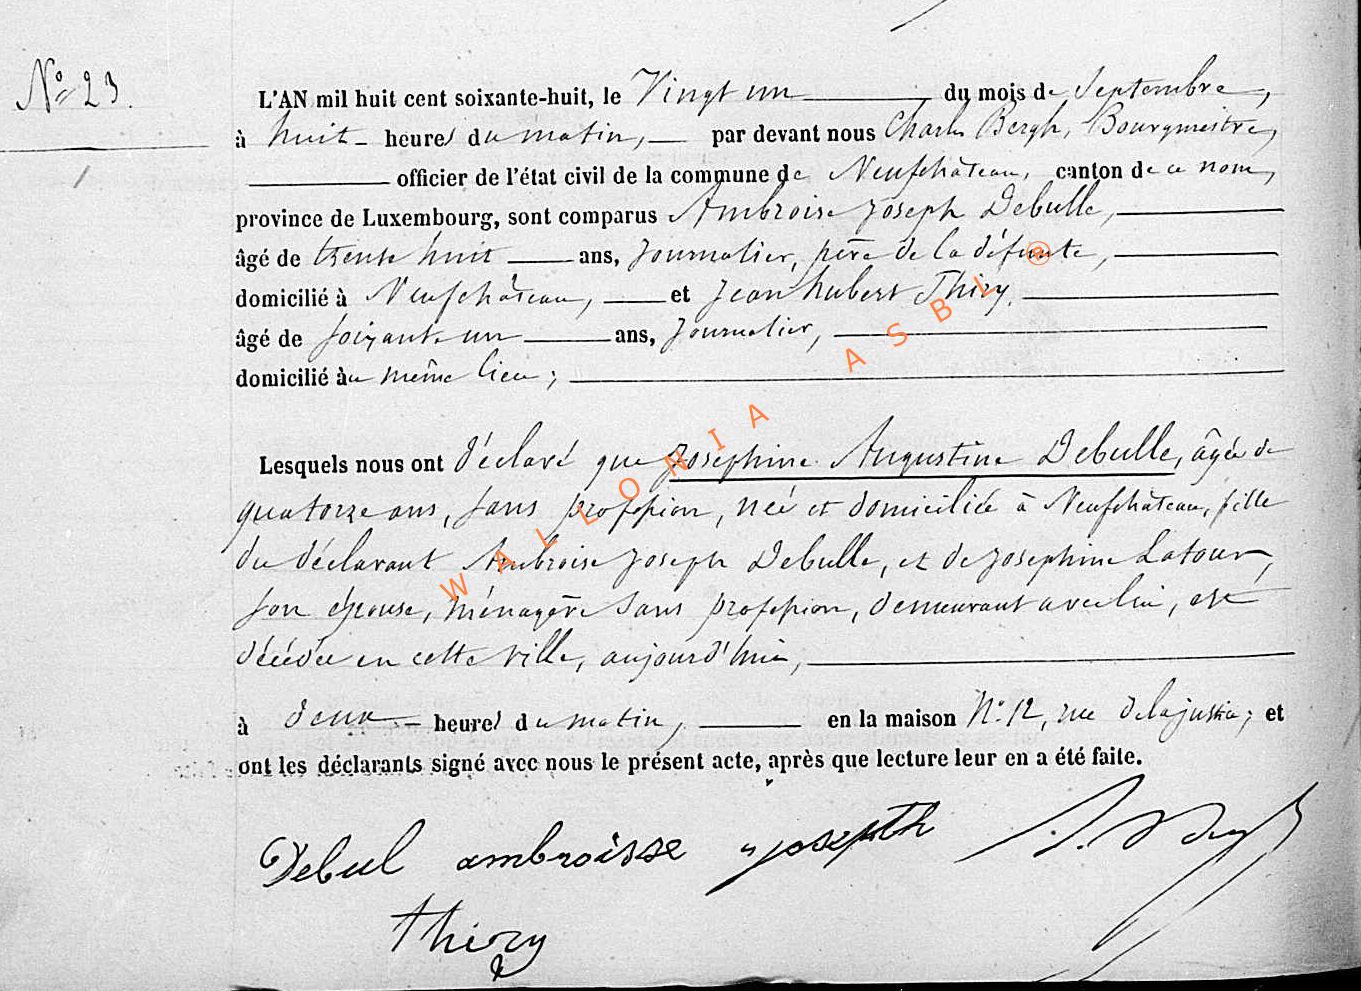 N° 23.
L'AN mil huit cent soixante-huit, le Vingt un du mois de Septembre,
à huit heures du matin, par devant nous Charles Bergh, Bourgmestre,
officier de l'état civil de la commune de Neufchâteau, canton de ce nom,
province de Luxembourg, sont comparus Ambroise Joseph Debulle,
âgé de trente huit ans, Journalier, père de la défunte,
domicilié à Neufchâteau, et Jean hubert Thiry,
âgé de soixante un ans, Journalier,
domicilié au même lieu;
Lesquels nous ont déclaré que Josephine Augustine Debulle, âgée de
quatorze ans, sans profession, née et domiciliée à Neufchâteau, fille
du déclarant Ambroise Joseph Debulle, et de Josephine Latour,
son épouse, ménagère sans profession, demeurant avec lui, est
décédée en cette ville, aujourd'hui,
à deux heures du matin, en la maison N° 12, rue de la justice; et
ont les déclarants signé avec nous le présent acte, après que lecture leur en a été faite.
Debul ambroisse joseph
Thiry
WALLONIA ASBL ®